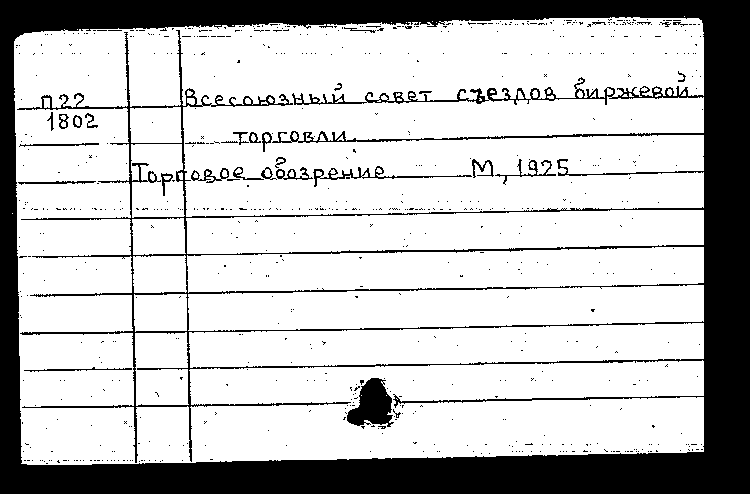 П22 Всесоюзный совет съездов биржевой
1802
торговли.
Торговое обозрение. М., 1925